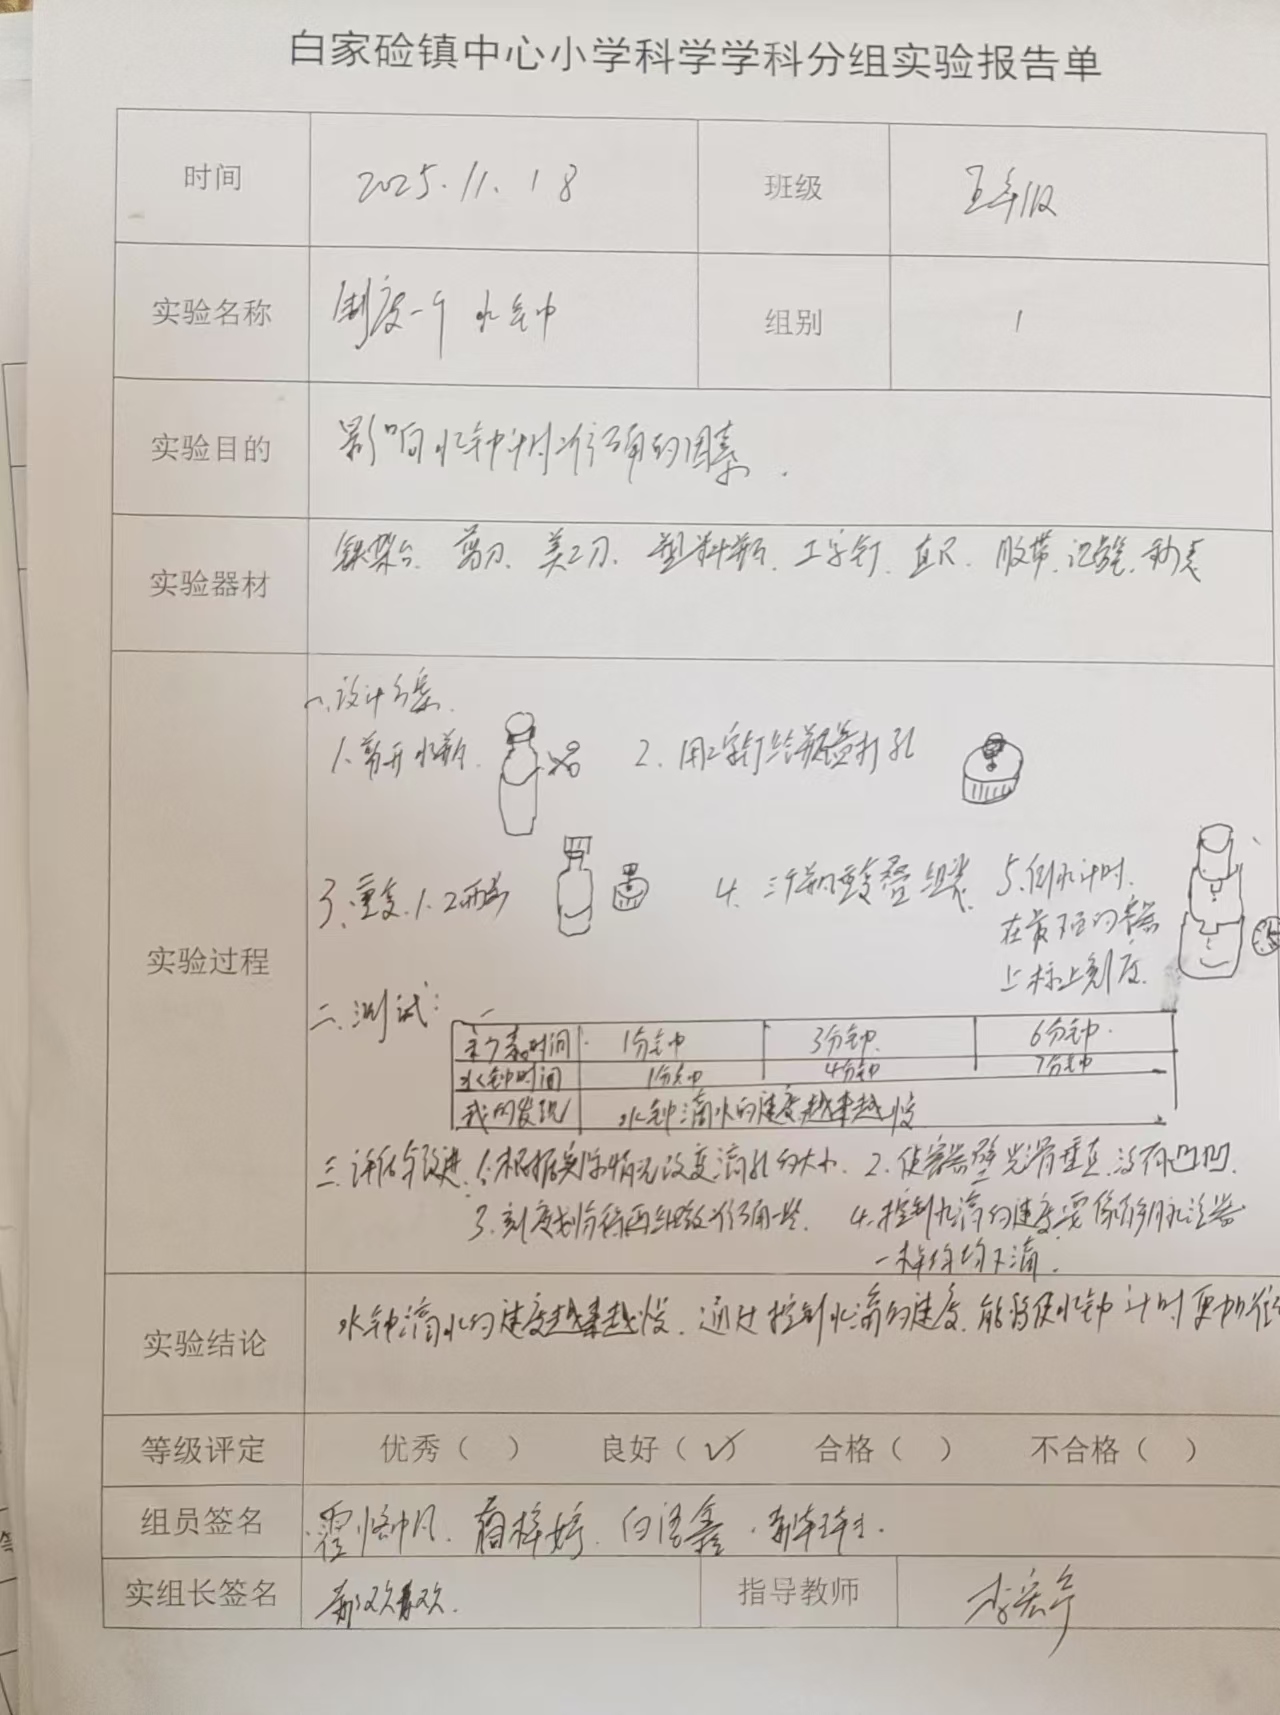 白家硷镇中心小学科学学科分组实验报告单
时间 2025.11.18 班级 五年级
实验名称 制度一个 水钟 组别 1
实验目的 影响水钟计时准确的因素.
实验器材 铁架台、剪刀、美工刀、塑料瓶、工字钉、直尺、胶带、记号笔、秒表
实验过程
一、设计方案.
1、剪开水瓶. 2、用工字钉给瓶盖打孔
3、重复、1、2两步 4、三个瓶重叠组装、 5、倒水计时、
在最下面的容器
上标上刻度.
二、测试:
时间 1分钟 3分钟、 6分钟.
水钟时间 1分钟 4分钟 7分钟
我的发现 水钟滴水的速度越来越慢
三、评估与改进、1、根据实际情况改变滴孔的大小、 2、使容器壁光滑垂直、没有凹凹.
3、刻度划分得再细致准确一些. 4、控制水滴的速度要像
一样均匀下滴.
实验结论 水钟滴水的速度越来越慢. 通过控制水滴的速度、能够使水钟计时更加准
等级评定 优秀（ ） 良好（√） 合格（ ） 不合格（ ）
组员签名
实组长签名 指导教师